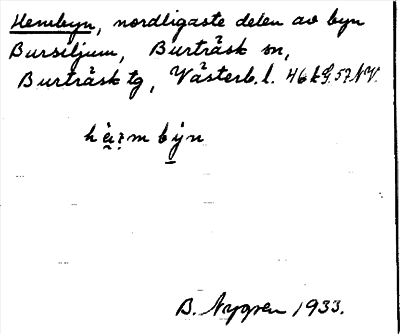 Hembyn, nordligaste delen av byn
Bursiljum, Burträsk sn,
Burträsk tg, Västerb. l. 46 k S. 57 NV.
B. Nygren 1933.